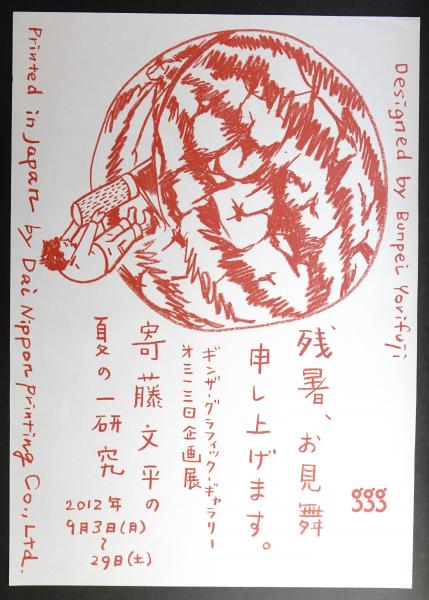 Designed by Bunpei Yorifuji
残暑、お見舞
申し上げます。
ggg
ギンザ・グラフィック・ギャラリー
オ三一三回企画展
寄藤文平の
夏の一研究
2012年
9月3日(月)
〜
29日(土)
Printed in Japan by Dai Nippon Printing Co., Ltd.